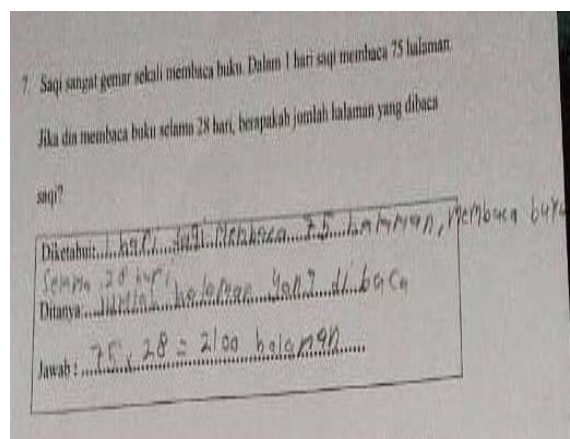 7. Saqi sangat gemar sekali membaca buku. Dalam 1 hari saqi membaca 75 halaman.
Jika dia membaca buku selama 28 hari, berapakah jumlah halaman yang dibaca
saqi?
Diketahui:.....1 hari saqi membaca 75 halaman, membaca buku
selama 28 hari
Ditanya:.....jumlah halaman yang dibaca
Jawab :....75 x 28 = 2100 halaman......